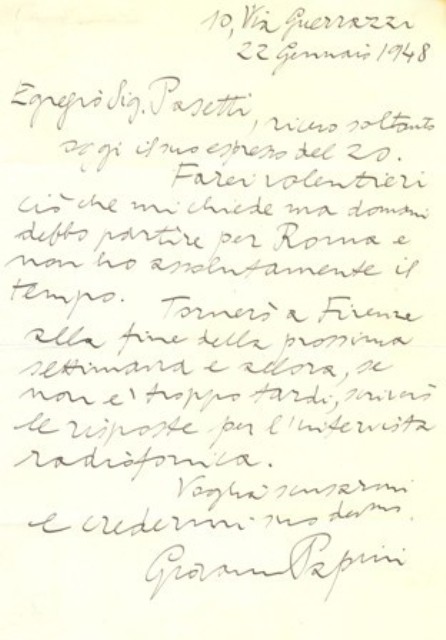 10, Via Guerrazzi
22 Gennaio 1948
Egregio Sig. Pasetti,
ricevo soltanto
oggi il suo espresso del 20.
Farei volentieri
ciò che mi chiede ma domani
debbo partire per Roma e
non ho assolutamente il
tempo. Tornerò a Firenze
alla fine della prossima
settimana e allora, se
non e' troppo tardi, scriverò
le risposte per l'intervista
radiofonica.
Voglia scusarmi
e credermi suo devmo.
Giovanni Papini